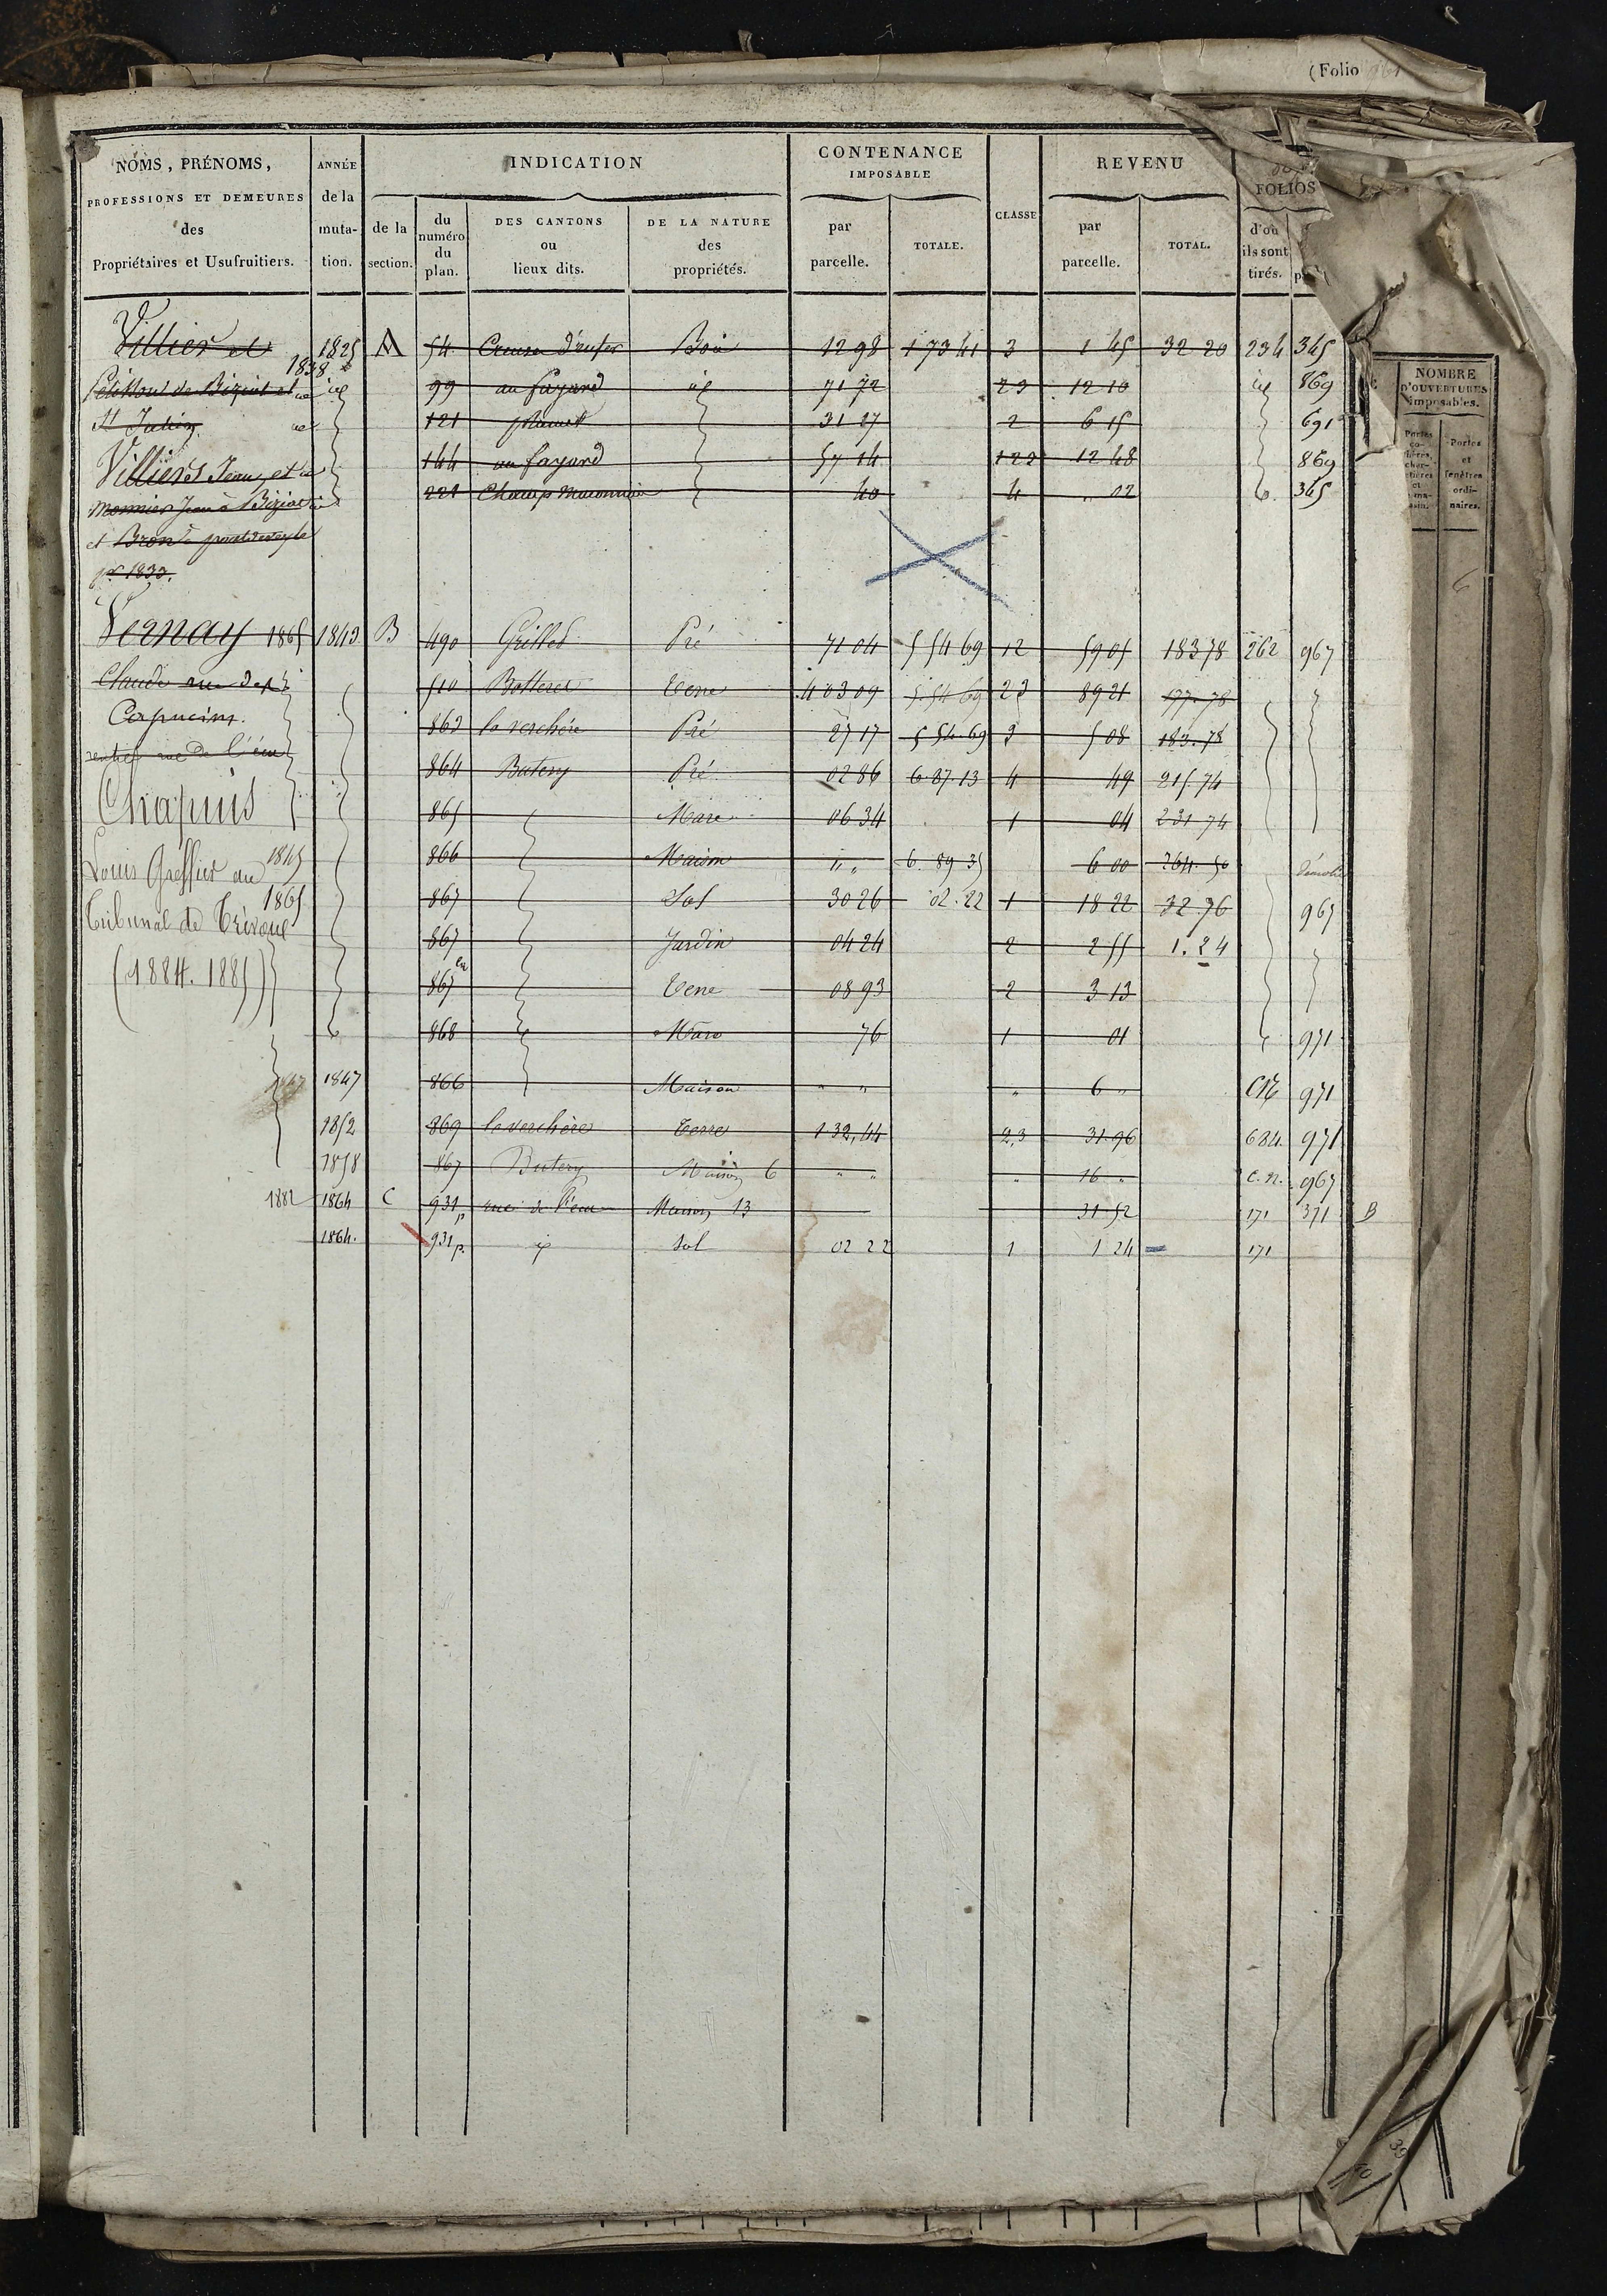 (Folio
NOMS, PRÉNOMS,
PROFESSIONS ET DEMEURES
des
Propriétaires et Usufruitiers.
ANNÉE
de la
muta-
tion.
INDICATION
de la
section.
du
numéro
du
plan.
DES CANTONS
ou
lieux dits.
DE LA NATURE
des
propriétés.
CONTENANCE
IMPOSABLE
par
parcelle.
TOTALE.
CLASSE
REVENU
par
parcelle.
TOTAL.
FOLIOS
d'où
ils sont
tirés.
NOMBRE
D'OUVERTURES
imposables.
Portes
et
fenêtres
ordi-
naires.
Villier et 1825 A 54 Creuse d'enfer Bois 12 98 1 73 41 3 1 45 32 20 234 345
1838
de Biziat et id 99 au fayard id 71 72 23 12 10 id 869
St Julien 121 31 27 2 6 15 691
Villiers Jean et 144 au fayard 57 14 12 48 869
Monnier Jean à Biziat 221 Champ 40 4 " 02 345
et Bron à
pr 1833.
Vernay 1865 1843 B 490 Grillet Pré 71 04 5 54 69 12 59 05 183 78 262 967
Claude rue des 510 Botteret Terre 4 03 09 5.54 69 23 89 21 177.78
Capucins. 863 la verchère Pré 27 17 5 54.69 3 5 08 183.78
rentier rue de l'écu 864 Butery Pré 02 86 6.87.13 4 49 215.74
Chapuis 865 Mare 06 34 1 04 231 74
1845 866 Maison " " 6.89 35 6 00 264.50 démolie
Louis Greffier au
1865 867 Sol 30 26 02.22 1 18 22 32 76 967
Tribunal de Trévoux 867 Jardin 04 24 2 2 55 1.24
(1884.1885) 867 Terre 08 93 2 3 13
868 Mare 76 1 01 971
1847 866 Maison " " " 6 " CN 971
1852 869 la verchère Terre 1 32,44 2,3 31.96 684 971
1858 867 Butery Maison 6 " " " 16 " C.N. 967
1882 1864 C 931p rue de l'écu Maison 13 31 52 171 371 B
1864. 931p. id Sol 02 22 1 1 24 171